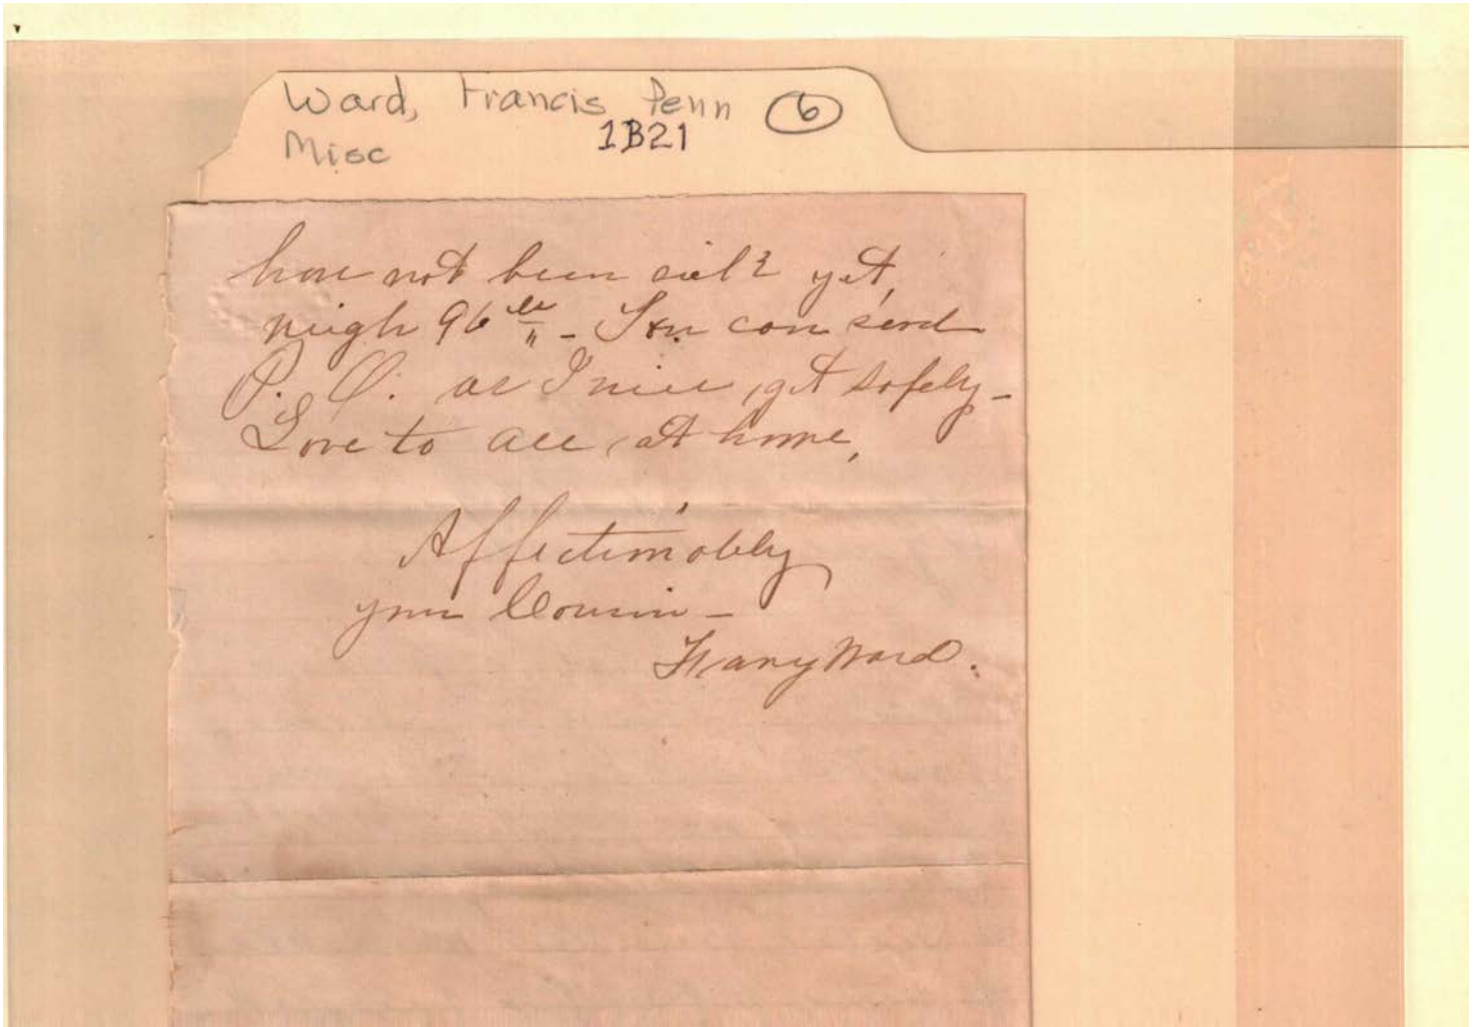 Ward, Francis Penn 6
Misc 1B21
have not been sick yet,
weigh 96 lbs - You can send
P. O. as I will get safely -
Love to all at home,
Affectionately
your Cousin -
Ward.